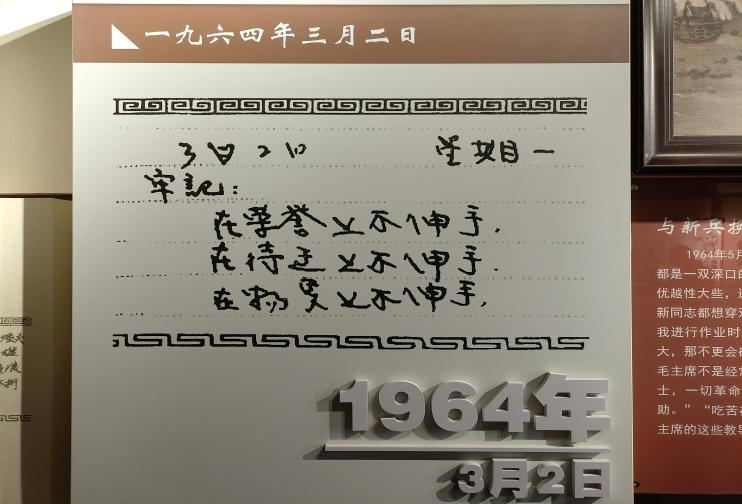 一九六四年三月二日
3月2日 星期一
牢記：
在荣誉上不伸手．
在待迂上不伸手．
在物貭上不伸手．
1964年
3月2日
与新兵
1964年5月
都是一双深口的
优越性大些，
新同志都想穿
我进行作业时
大，那不更会
毛主席不是经常
士，一切革命
助。”“吃苦在
主席的这些教导